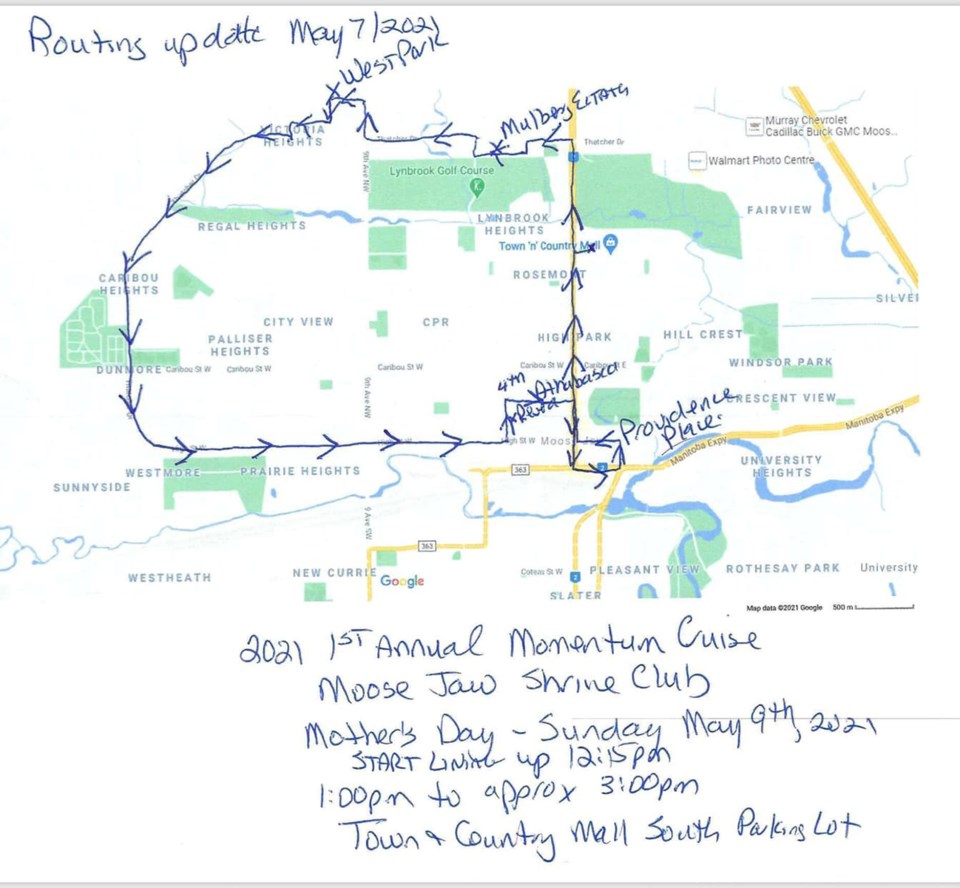 Routing update May 7/2021
West Park
Mulberg Estates
Murray Chevrolet
Cadillac Buick GMC Moos...
Thatcher Dr
Thatcher Dr
VICTORIA
HEIGHTS
Walmart Photo Centre
Lynbrook Golf Course
9th Ave NW
FAIRVIEW
LYNBROOK
HEIGHTS
REGAL HEIGHTS
Town 'n' Country Mall
ROSEMONT
CARIBOU
HEIGHTS
SILVE
CITY VIEW
CPR
HIGH PARK
HILL CREST
PALLISER
HEIGHTS
WINDSOR PARK
DUNMORE
Caribou St W
Caribou St W
Caribou St W
Caribou St W
Caribou St E
4th
Athabasca
9th Ave NW
CRESCENT VIEW
Providence
Place
Manitoba Expy
High St W
Moos
Manitoba Expy
363
WESTMORE
PRAIRIE HEIGHTS
UNIVERSITY
HEIGHTS
SUNNYSIDE
9 Ave SW
363
WESTHEATH
NEW CURRIE
Google
Coteau St W
PLEASANT VIEW
ROTHESAY PARK
University
SLATER
Map data ©2021 Google 500 m
2021 1ST Annual Momentum Cuise
Moose Jaw Shrine Club
Mother's Day - Sunday May 9th, 2021
START LINING up 12:15pm
1:00pm to approx 3:00pm
Town & Country Mall South Parking Lot